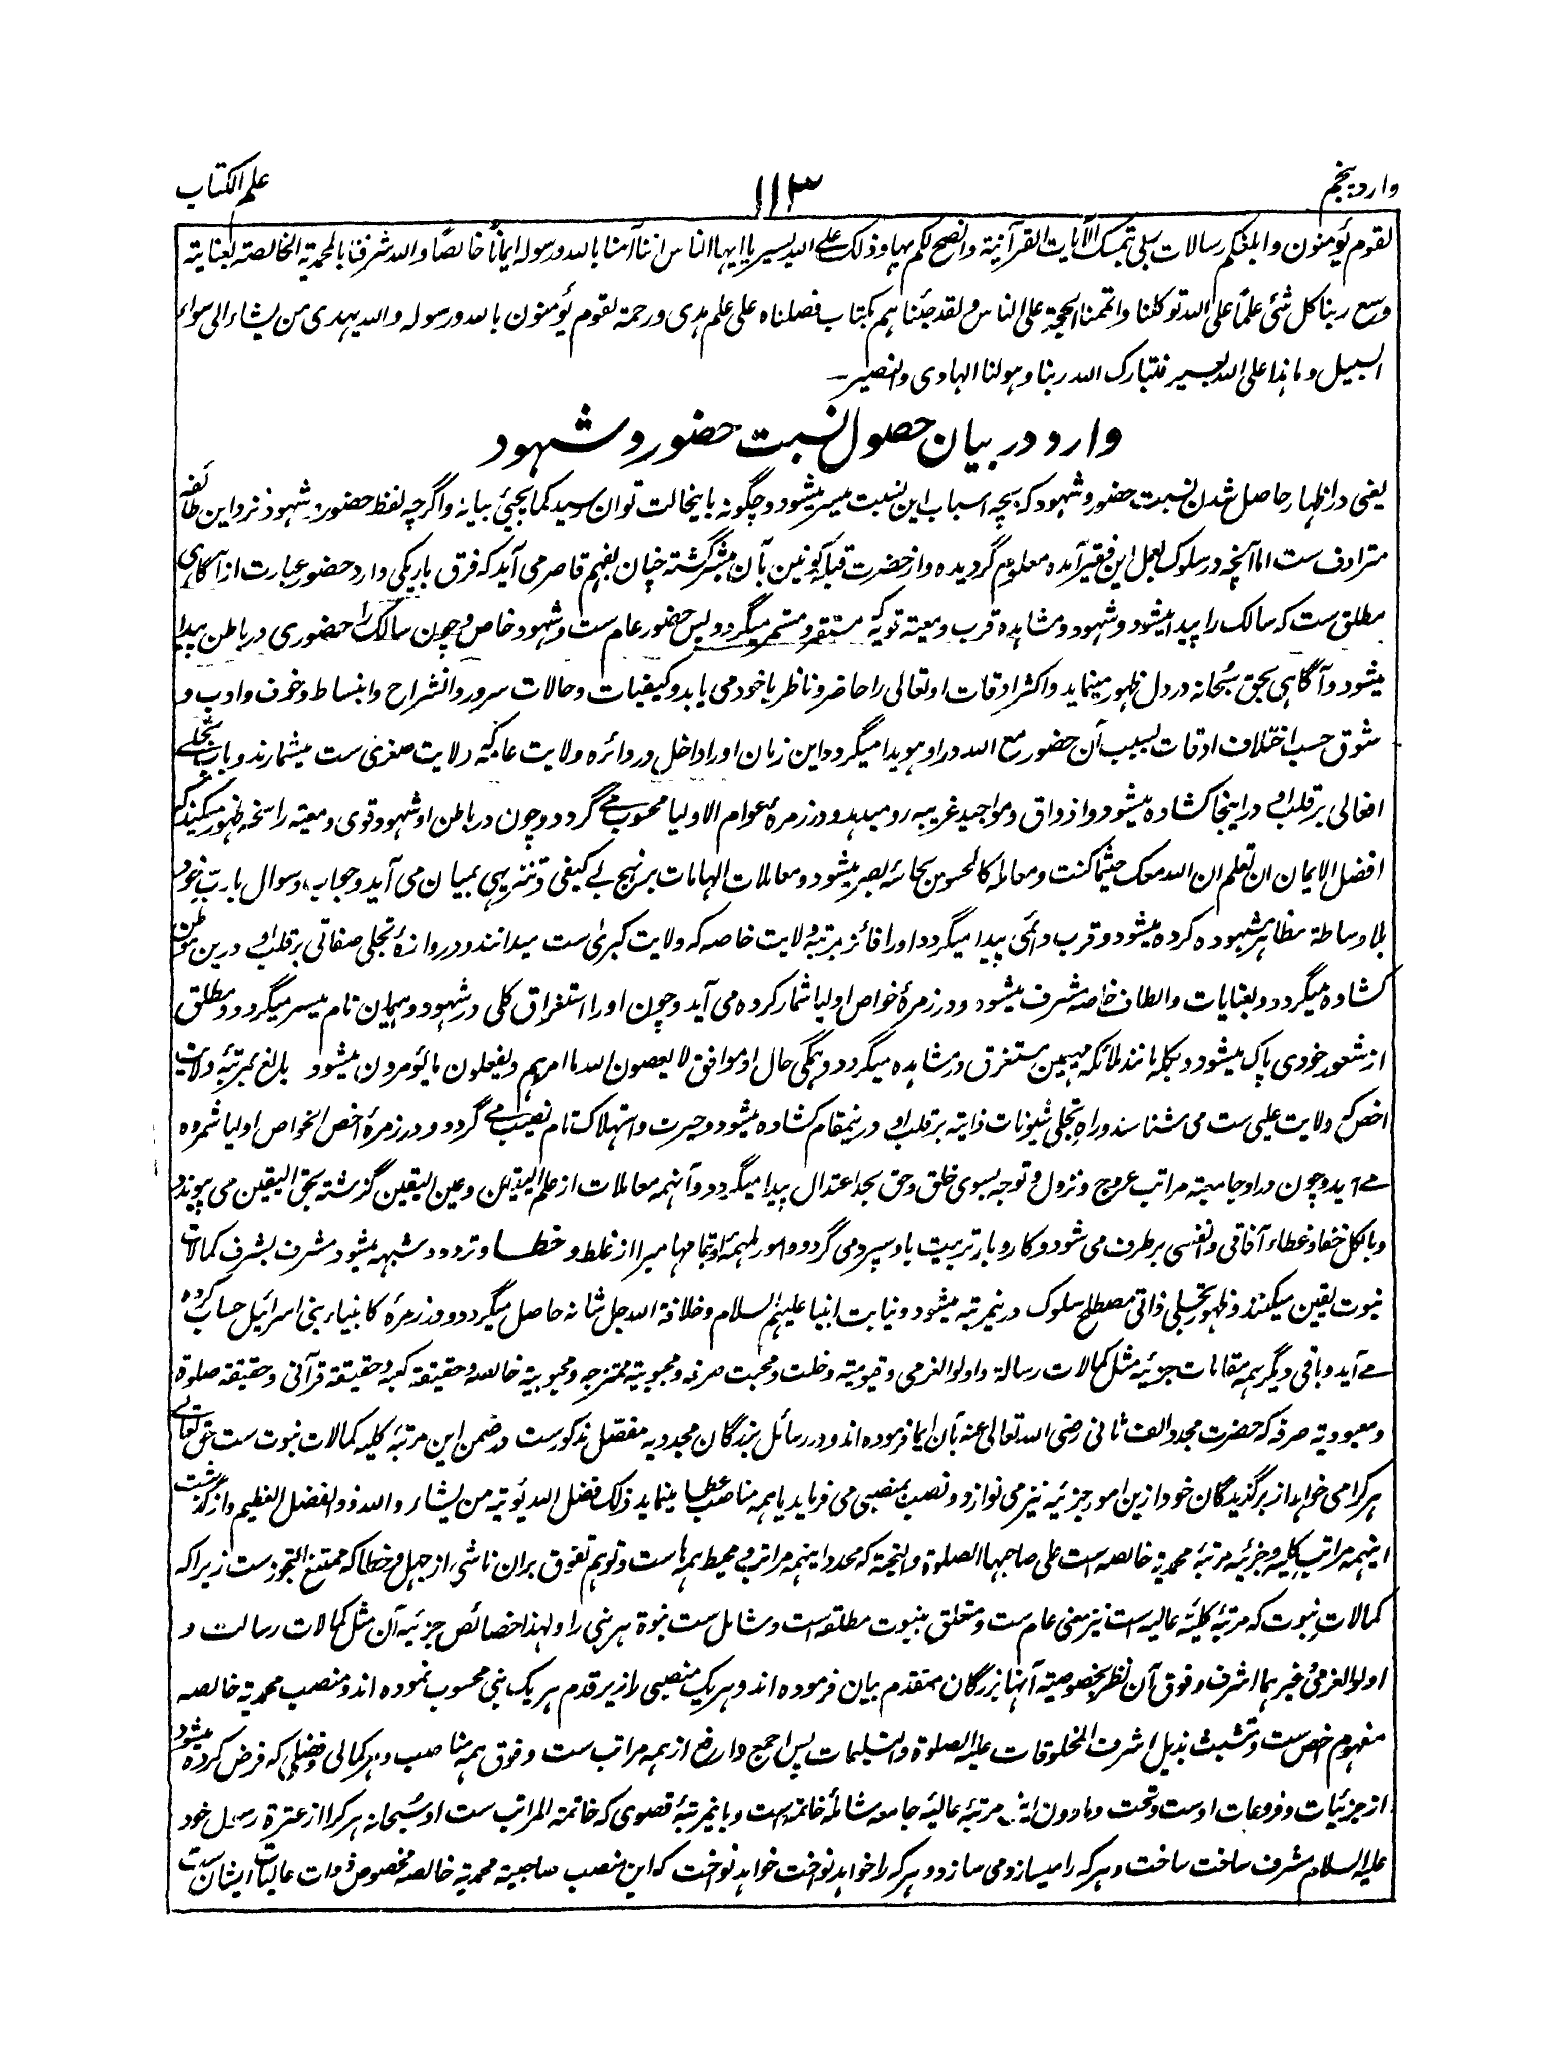 وارد پنجم ۱۱۳ علم الکتاب
لقوم یؤمنون وابلغکم رسالات ربی بتمسک الآیات القرآنیة وانصح لکم بها وذلک علی الله یسیر یا ایها الناس اننا آمنا بالله ورسوله ایمانًا خالصًا والله شرفنا بالمحمدیة الخالصة بعنایته
وسع ربنا کل شئ علمًا علی الله توکلنا واتممنا الحجة علی الناس ولقد جئناهم بکتاب فصلناه علی علم هدی ورحمة لقوم یؤمنون بالله ورسوله والله یهدی من یشاء الی سواء
السبیل وما هذا علی الله بعسیر فتبارک الله ربنا وهو لنا الهادی والنصیر۔
وارد در بیان حصول نسبت حضور و شهود
یعنی در اظهار حاصل شدن نسبت حضور و شهود که بچه اسباب این نسبت میسر میشود و چگونه باینحالت توان رسید کما یجیئ بیانه و اگرچه لفظ حضور و شهود نزد این طائفه
مترادف ست اما آنچه در سلوک بعمل این فقیر آمده معلوم گردیده و از حضرت قبله کونین بآن مبشر گشته چنان بفهم قاصر می آید که فرق باریکی دارد حضور عبارت از آگاهی
مطلق ست که سالک را پیدا میشود و شهود و مشاهده قرب و معیته قویه که مستقر و مستمر میگردد پس حضور عام ست و شهود خاص و چون سالک را حضوری در باطن پیدا
میشود و آگاهی بحق سبحانه در دل ظهور مینماید و اکثر اوقات او تعالی را حاضر و ناظر با خود می یابد و کیفیات و حالات سرور و انشراح و انبساط و خوف و ادب و
شوق حسب اختلاف اوقات بسبب آن حضور مع الله در او هویدا میگردد این زمان او را داخل در دائره ولایت عامه که ولایت صغری ست میشمارند و باب تجلے
افعالی بر قلب او در اینجا کشاده میشود و اذواق و مواجید غریبه رو میدهد و در زمرهٔ عوام الاولیا محسوب مے گردد و چون در باطن او شهود قوی و معیته راسخه ظهور میکند که
افضل الایمان ان تعلم ان الله معک حیثما کنت و معامله کالمحسوس بحاسه بصر میشود و معاملات الهامات بر نهج بے کیفی و تنزیهی بمیان می آید و جواب و سوال با رب خود
بلا وساطة مظاهر مشهوده کرده میشود و قرب دائمی پیدا میگردد او را فائز بمرتبه ولایت خاصه که ولایت کبری ست میدانند و دروازهٔ تجلی صفاتی بر قلب او درین موطن
کشاده میگردد و بعنایات و الطاف خاصه مشرف میشود و در زمرهٔ خواص اولیا شمار کرده می آید و چون او را استغراق کلی در شهود و هیمان تام میسر میگردد و مطلق
از شعور خودی پاک میشود و بکله مانند ملائکه مهیمین مستغرق در مشاهده میگردد و همگی حال او موافق لا یعصون الله ما امرهم و یفعلون ما یؤمرون میشود بالغ بمرتبهٔ ولایت
اخص که ولایت علیا ست می شناسند و راه تجلی شیونات ذاتیه بر قلب او درینمقام کشاده میشود و حیرت و استهلاک تام نصیب مے گردد و در زمرهٔ اخص الخواص اولیا شمرده
مے آید و چون در او جامعیته مراتب عروج و نزول و توجه بسوی خلق و حق بحد اعتدال پیدا میگردد و آنهمه معاملات از علم الیقین و عین الیقین گزشته بحق الیقین می پیوندد
و بالکل خفا و غطاء آفاقی و انفسی برطرف می شود و کاروبار تربیت باو سپرد می گردد و امور ملهمهٔ او بتمامها مبرا از غلط و خطا و تردد و شبهه میشود مشرف بشرف کمالات
نبوت یقین میکنند و ظهور تجلی ذاتی مصطلح سلوک درینمرتبه میشود و نیابت انبیا علیهم السلام و خلافة الله جل شانه حاصل میگردد و در زمرهٔ کانبیاء بنی اسرائیل حساب کرده
مے آید و باقی دیگر همه مقامات جزئیه مثل کمالات رسالة و اولو العزمی و قیومیته و خلت و محبت صرفه و محبوبیة ممتزجه و محبوبیة خالصه و حقیقة کعبه و حقیقة قرآنی و حقیقة صلوة
و معبودیة صرفه که حضرت مجدد الف ثانی رضی الله تعالی عنه بآن ایما فرموده اند و در رسائل بزرگان مجددیه مفصل مذکورست در ضمن این مرتبهٔ کلیه کمالات نبوت ست حق تعالے
هر کرا می خواهد از برگزیدگان خود ازین امور جزئیه نیز می نوازد و نصیب بمنصبی می فرماید یا همه مناصب عطا مینماید ذلک فضل الله یؤتیه من یشاء والله ذو الفضل العظیم و از گذشت
اینهمه مراتب کلیه و جزئیه مرتبهٔ محمدیة خالصه است علی صاحبها الصلوة والتحیة که محدد اینهمه مراتب و محیط همهاست و توهم تفوق بران ناشی از جهل و خطا که ممتنع التجوزست زیرا که
کمالات نبوت که مرتبهٔ کلیهٔ عالیه است نیز معنی عام ست و متعلق بنبوت مطلقه است و شامل ست نبوة هر نبی را و لهذا خصائص جزئیه آن مثل کمالات رسالت و
اولو العزمی و غیرهما اشرف و فوق آن نظر بخصوصیة آنها بزرگان متقدم بیان فرموده اند و هر یک منصبی را زیر قدم هر یک نبی محسوب نموده اند و منصب محمدیة خالصه
مفهوم اخص ست و تشبث بذیل اشرف المخلوقات علیه الصلوة والتسلیمات پس اجمع و ارفع از همه مراتب ست و فوق همه مناصب و هر کمالی و فضلی که فرض کرده میشود
از جزئیات و فروعات اوست و تحت و مادون این مرتبهٔ عالیهٔ جامعه شاملهٔ خاتمه است و باینمرتبهٔ قصوی که خاتمة المراتب ست او سبحانه هر کرا از عترة رسول خود
علیه السلام مشرف ساخت ساخت و هر که را میسازد می سازد و هر که را خواهد نواخت خواهد نواخت که این منصب صاحبیة محمدیة خالصه مخصوص ذوات عالیات ایشان ست